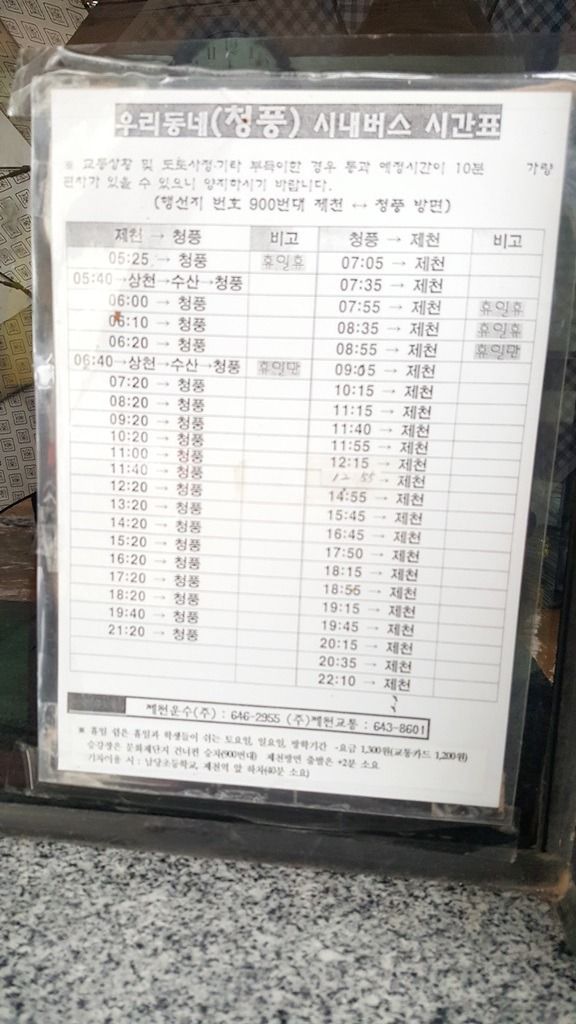 우리동네(청풍) 시내버스 시간표
※ 교통상황 및 도로사정기타 부득이한 경우 통과 예정시간이 10분 가량
편차가 있을 수 있으니 양지하시기 바랍니다.
(행선지 번호 900번대 제천 ↔ 청풍 방면)
제천 → 청풍 비고 청풍 → 제천 비고
05:25 → 청풍 휴일휴 07:05 → 제천
05:40→상천→수산→청풍 07:35 → 제천
06:00 → 청풍 07:55 → 제천 휴일휴
06:10 → 청풍 08:35 → 제천 휴일휴
06:20 → 청풍 08:55 → 제천 휴일만
06:40→상천→수산→청풍 휴일만 09:05 → 제천
07:20 → 청풍 10:15 → 제천
08:20 → 청풍 11:15 → 제천
09:20 → 청풍 11:40 → 제천
10:20 → 청풍 11:55 → 제천
11:00 → 청풍 12:15 → 제천
11:40 → 청풍 12 55 → 제천
12:20 → 청풍 14:55 → 제천
13:20 → 청풍 15:45 → 제천
14:20 → 청풍 16:45 → 제천
15:20 → 청풍 17:50 → 제천
16:20 → 청풍 18:15 → 제천
17:20 → 청풍 18:55 → 제천
18:20 → 청풍 19:15 → 제천
19:40 → 청풍 19:45 → 제천
21:20 → 청풍 20:15 → 제천
20:35 → 제천
22:10 → 제천
제천운수(주) : 646-2955 (주)제천교통 : 643-8601
※ 휴일 쉼은 휴일과 학생들이 쉬는 토요일, 일요일, 방학기간 -요금 1,300원(교통카드 1,200원)
승강장은 문화재단지 건너편 승차(900번대) 제천방면 출발은 +2분 소요
기차이용 시 : 남당초등학교, 제천역 앞 하차(40분 소요)